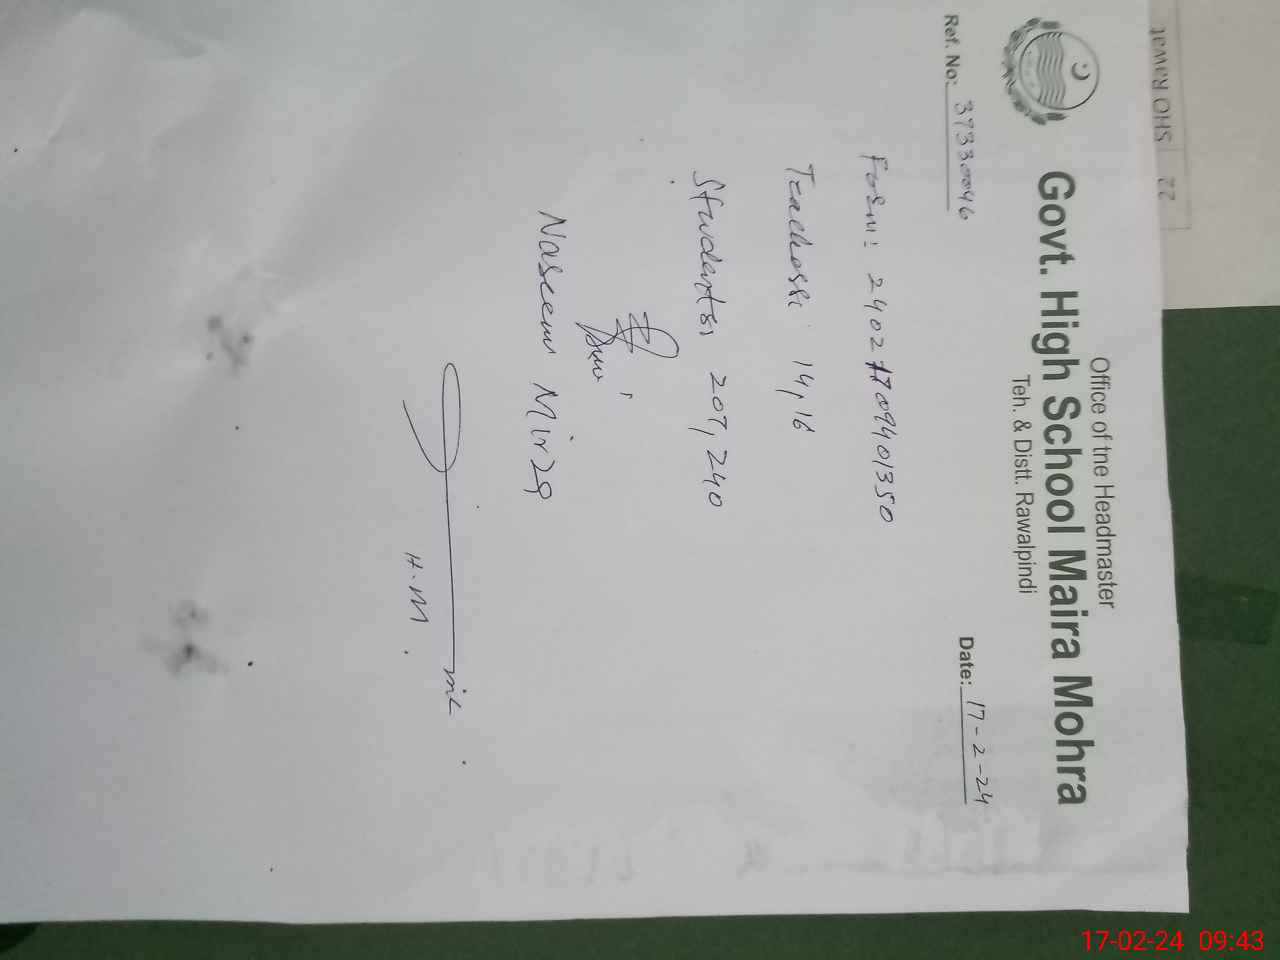 SHO Rawat 22
Office of tne Headmaster
Govt. High School Maira Mohra
Teh. & Distt. Rawalpindi
Ref. No: 37330046
Date: 17-2-24
Form: 24027709401350
Teachers: 14, 16
Students: 207, 240
Naseem
H.M.
17-02-24 09:43